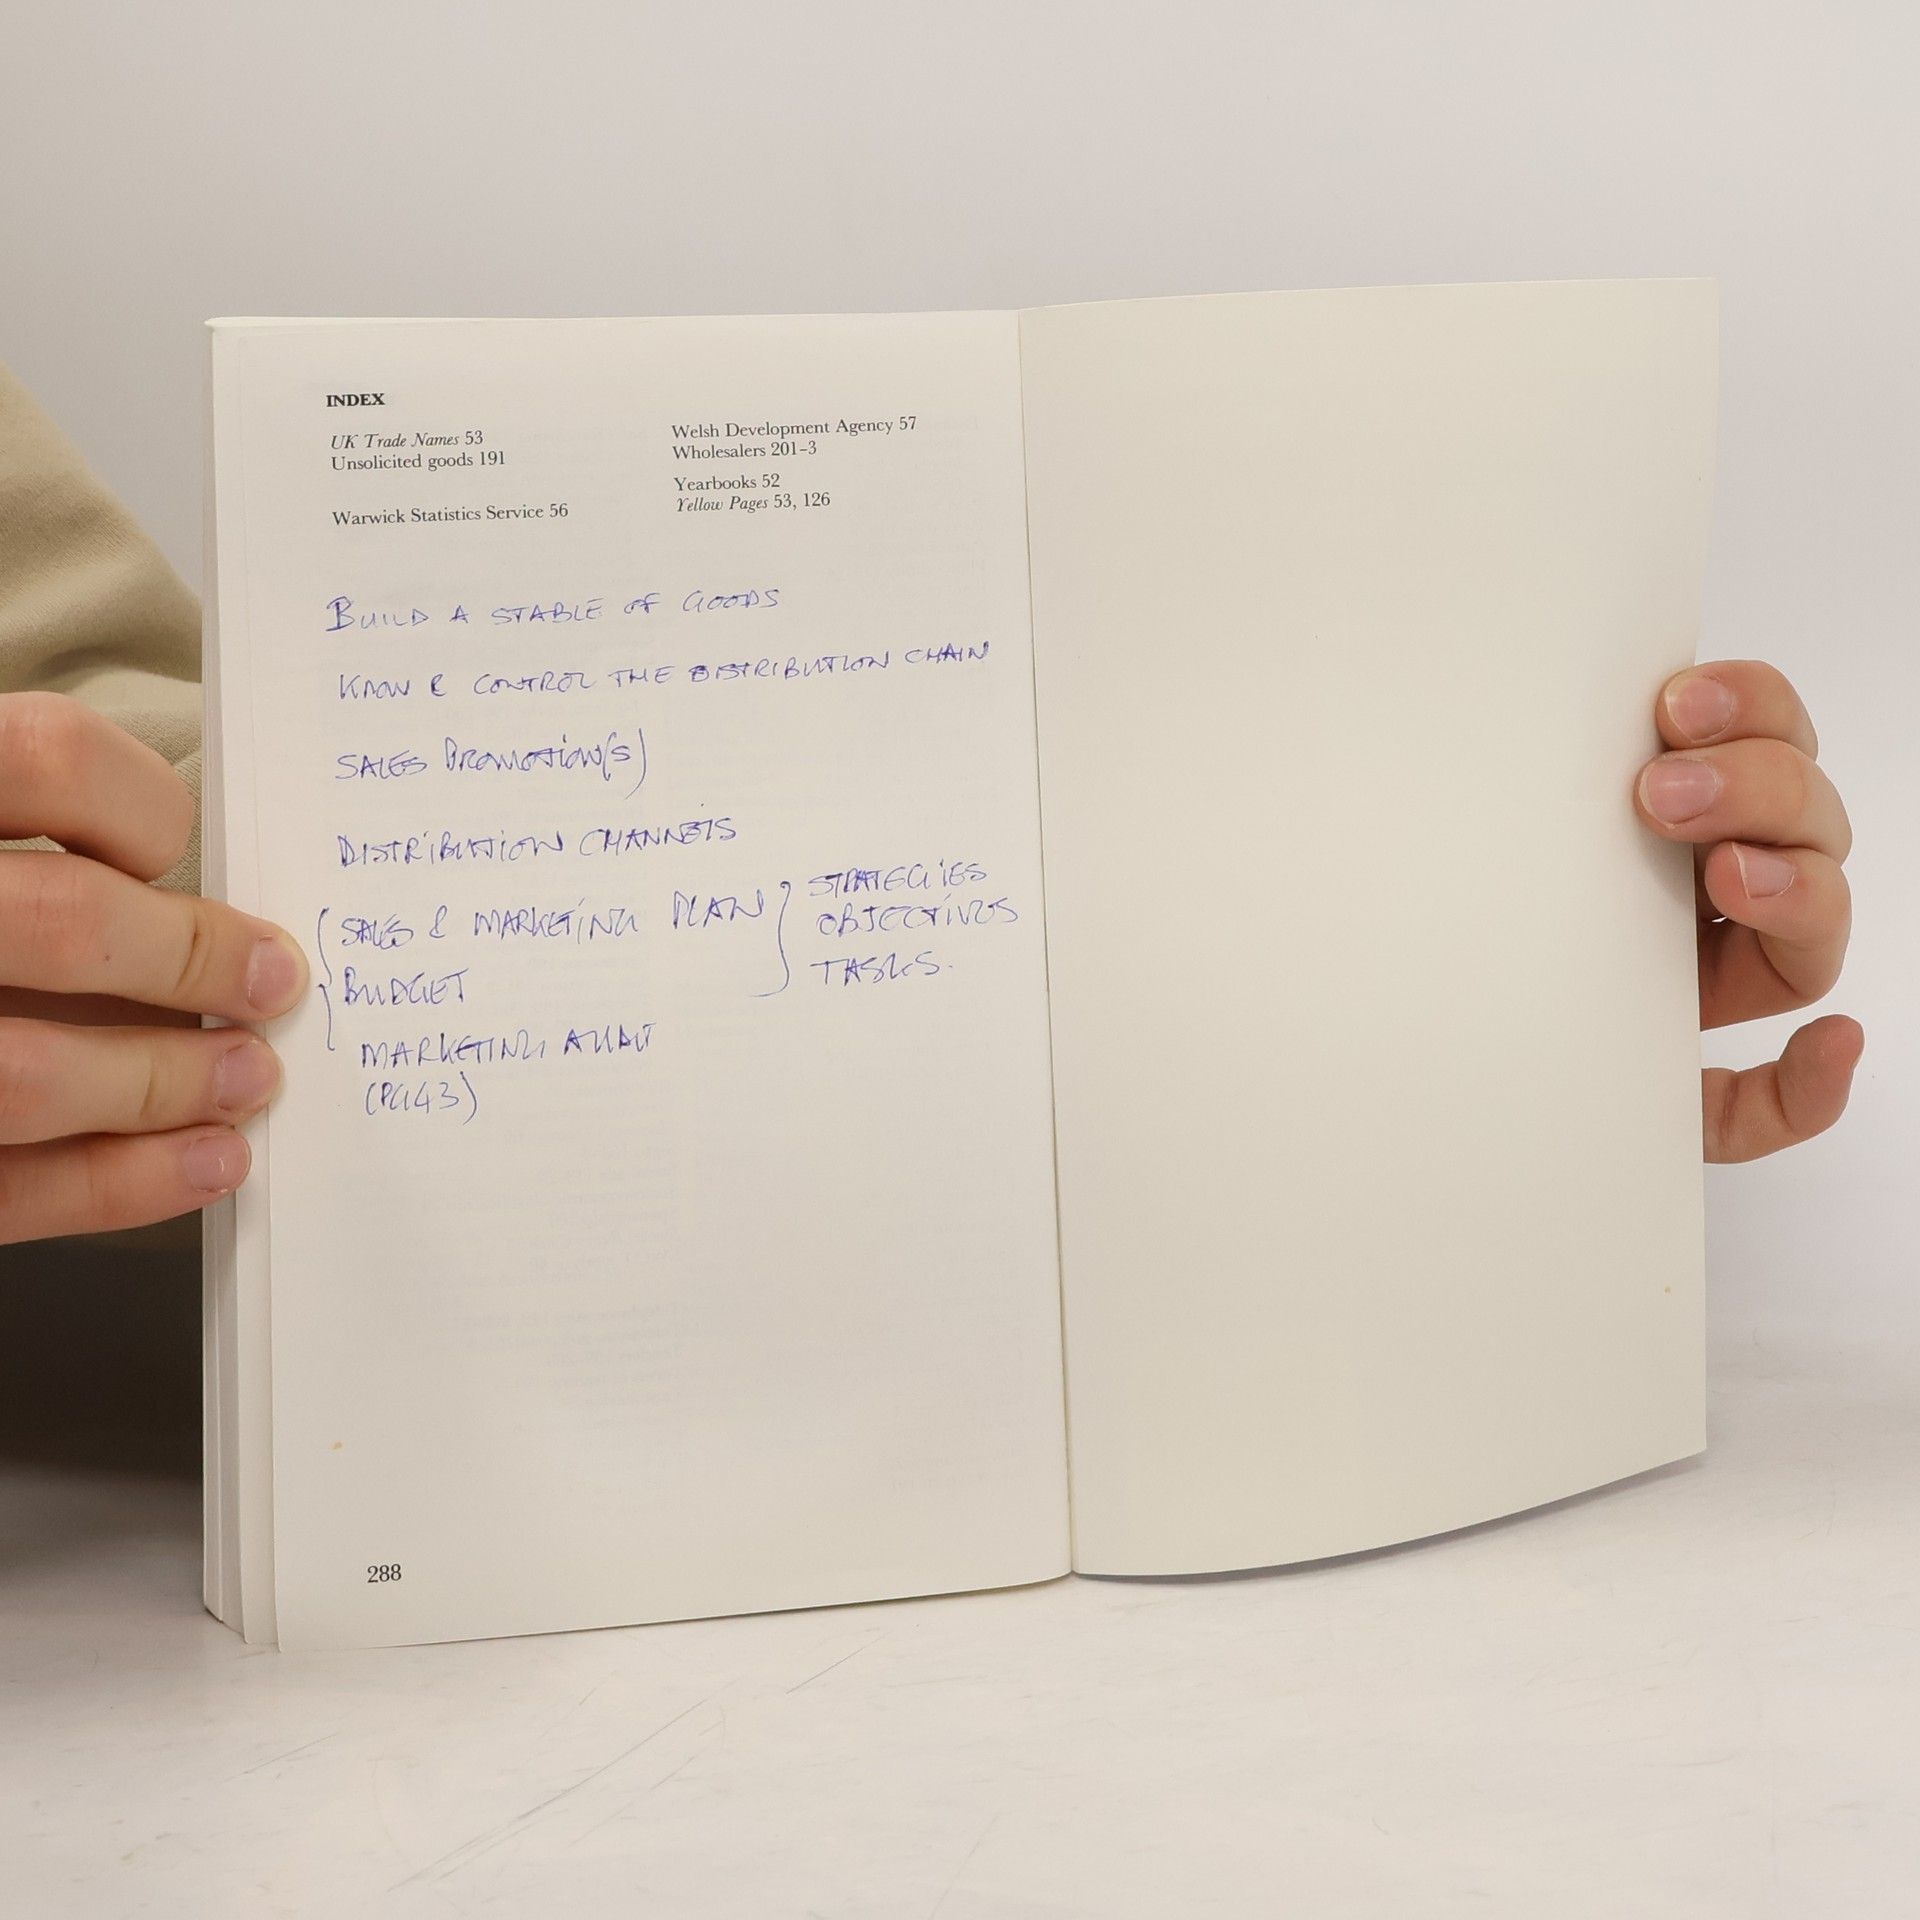 INDEX
UK Trade Names 53
Unsolicited goods 191
Warwick Statistics Service 56
Welsh Development Agency 57
Wholesalers 201–3
Yearbooks 52
Yellow Pages 53, 126
BUILD A STABLE OF GOODS
KNOW & CONTROL THE DISTRIBUTION CHAIN
SALES PROMOTION(S)
DISTRIBUTION CHANNELS
SALES & MARKETING PLAN
BUDGET
MARKETING AUDIT
(PG43)
STRATEGIES
OBJECTIVES
TASKS.
288